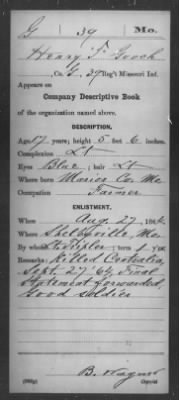 G | 39 | Mo.
Henry T. Gooch
, Co. G, 39 Reg't Missouri Inf.
Appears on
Company Descriptive Book
of the organization named above.
DESCRIPTION.
Age 17 years; height 5 feet 6 inches.
Complexion Lt
Eyes Blue; hair Lt
Where born Marion Co. Mo
Occupation Farmer
ENLISTMENT.
When Aug. 27, 1864.
Where Shelbyville, Mo
By whom ; term 1 y'rs.
Remarks: Killed Centralia,
Sept. 27 '64 Final
Statement forwarded,
Good soldier
B. Wagner
Copyist.